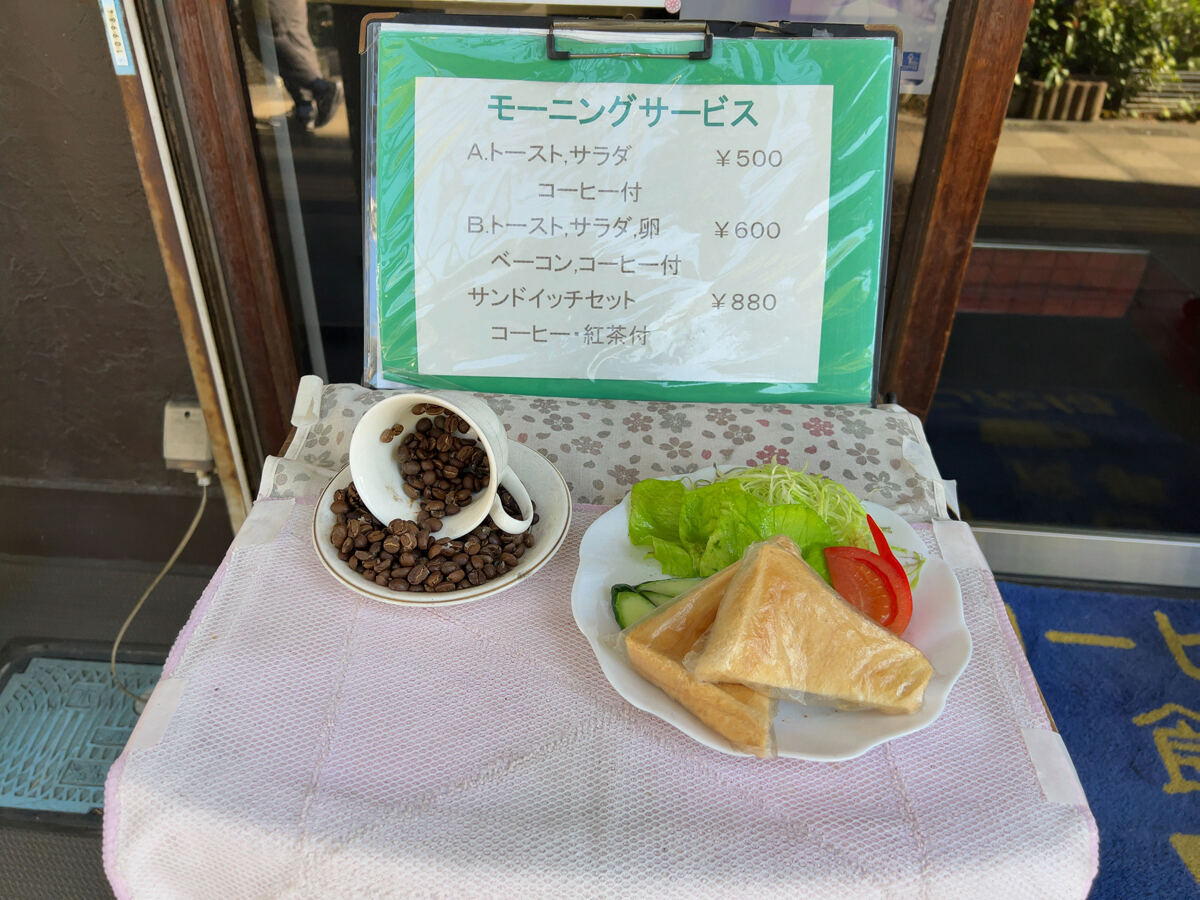 モーニングサービス
A.トースト,サラダ ¥500
コーヒー付
B.トースト,サラダ,卵 ¥600
ベーコン,コーヒー付
サンドイッチセット ¥880
コーヒー・紅茶付